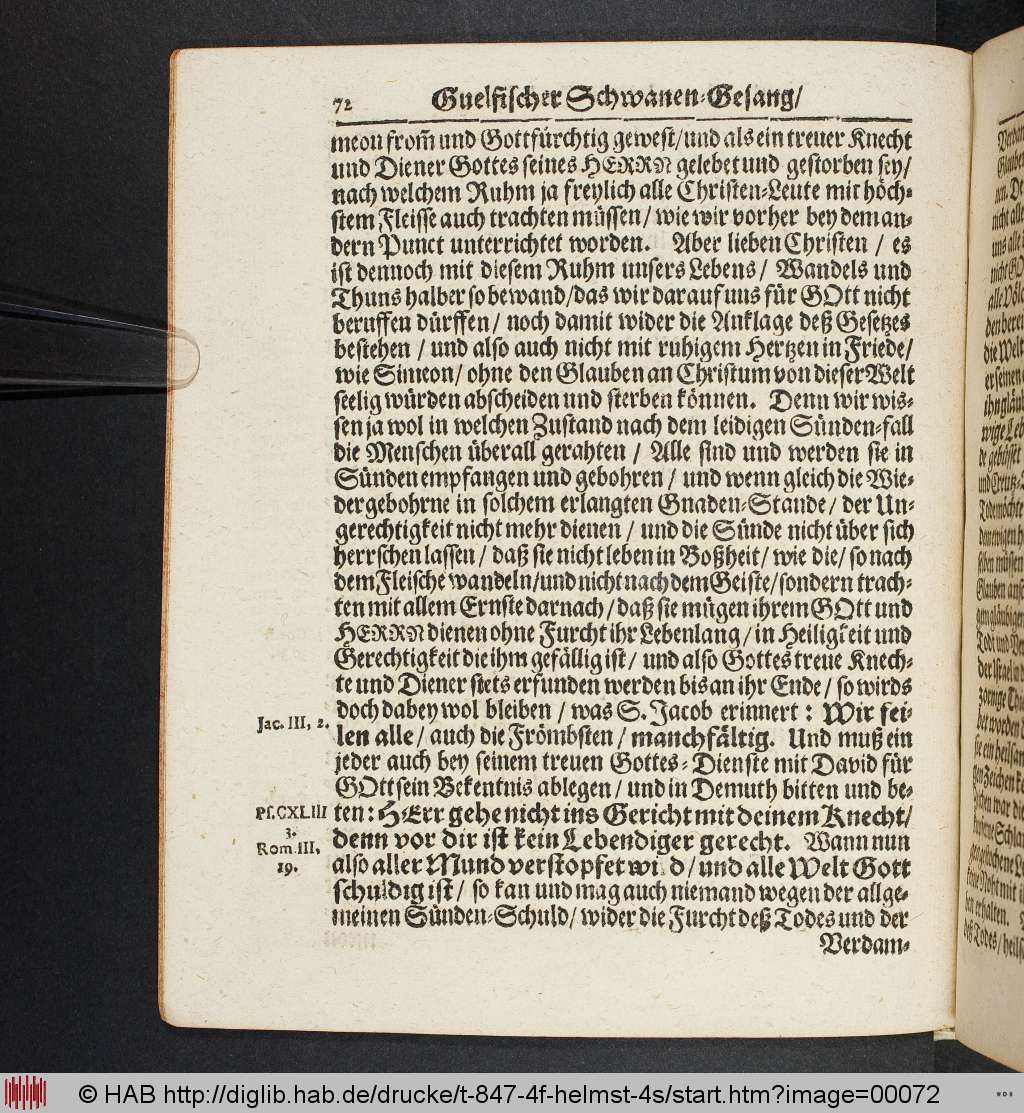 72 Guelfischer Schwanen-Gesang/
meon from̃ und Gottfürchtig gewest/und als ein treuer Knecht
und Diener Gottes seines HERRN gelebet und gestorben sey/
nach welchem Ruhm ja freylich alle Christen-Leute mit höch-
stem Fleisse auch trachten müssen/ wie wir vorher bey dem an-
dern Punct unterrichtet worden. Aber lieben Christen / es
ist dennoch mit diesem Ruhm unsers Lebens/ Wandels und
Thuns halber so bewand/das wir darauf uns für GOtt nicht
beruffen dürffen/ noch damit wider die Anklage deß Gesetzes
bestehen / und also auch nicht mit ruhigem Hertzen in Friede/
wie Simeon/ ohne den Glauben an Christum von dieser Welt
seelig würden abscheiden und sterben können. Denn wir wis-
sen ja wol in welchen Zustand nach dem leidigen Sünden-fall
die Menschen überall gerahten / Alle sind und werden sie in
Sünden empfangen und gebohren / und wenn gleich die Wie-
dergebohrne in solchem erlangten Gnaden-Stande/ der Un-
gerechtigkeit nicht mehr dienen / und die Sünde nicht über sich
herrschen lassen / daß sie nicht leben in Boßheit/ wie die/ so nach
dem Fleische wandeln/und nicht nach dem Geiste/sondern trach-
ten mit allem Ernste darnach/ daß sie mügen ihrem GOtt und
HERRN dienen ohne Furcht ihr Lebenlang/ in Heiligkeit und
Gerechtigkeit die ihm gefällig ist/ und also Gottes treue Knech-
te und Diener stets erfunden werden bis an ihr Ende/ so wirds
doch dabey wol bleiben / was S. Jacob erinnert: Wir fei-
Jac. III, 2.
len alle/ auch die Frömbsten/ manchfältig. Und muß ein
jeder auch bey seinem treuen Gottes-Dienste mit David für
GOtt sein Bekentnis ablegen/ und in Demuth bitten und be-
Ps. CXLIII
3.
ten: HErr gehe nicht ins Gericht mit deinem Knecht/
denn vor dir ist kein Lebendiger gerecht. Wann nun
Rom. III,
19.
also aller Mund verstopfet wi d/ und alle Welt Gott
schuldig ist/ so kan und mag auch niemand wegen der allge-
meinen Sünden-Schuld/ wider die Furcht deß Todes und der
Verdam-
© HAB http://diglib.hab.de/drucke/t-847-4f-helmst-4s/start.htm?image=00072